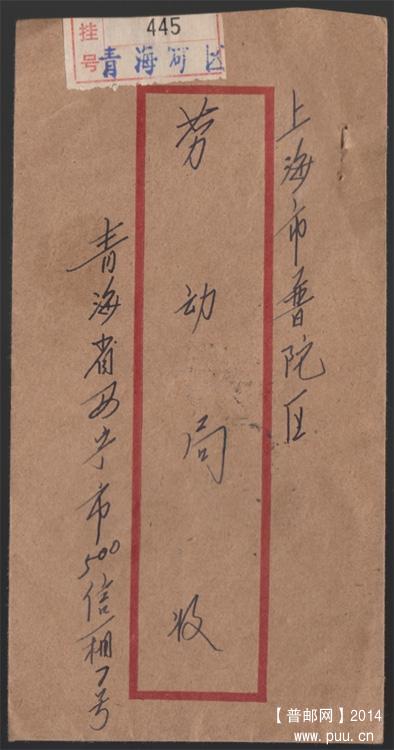 挂号
445
青海河区
上海市普陀区
劳动局 收
青海省西宁市500信箱7号
【普邮网】2014
www.puu.cn